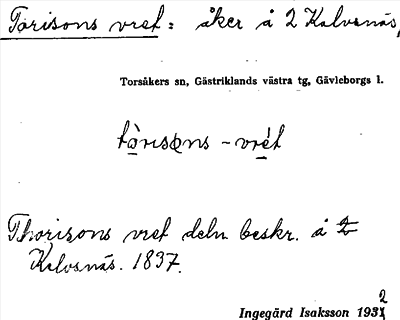 Torisons vret: åker å 2 Kalvsnäs,
Torsåkers sn, Gästriklands västra tg, Gävleborgs l.
tòrisons - vrét
Thorisons vret deln beskr. å
Kalvsnäs. 1837.
Ingegärd Isaksson 1932